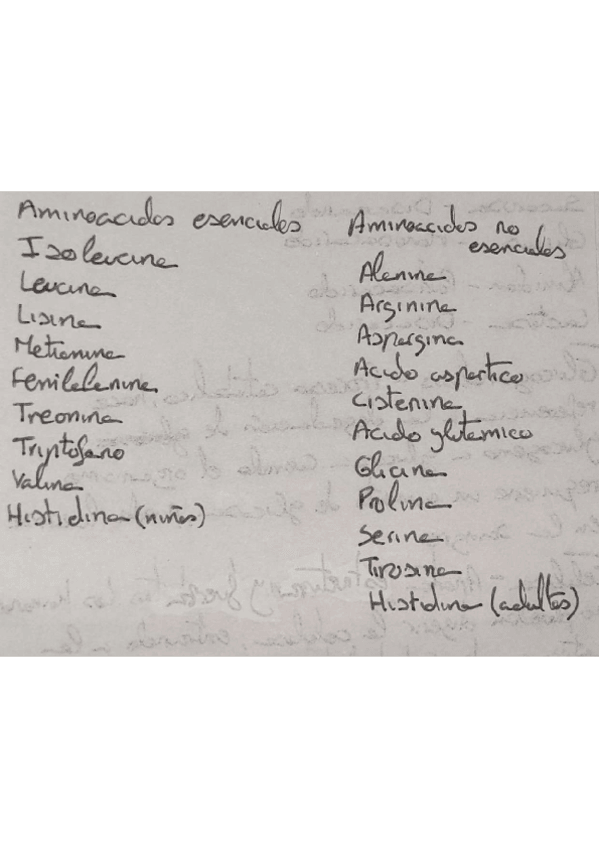 Aminoacidos esenciales
Isoleucina
Leucina
Lisina
Metionina
Fenilalanina
Treonina
Triptofano
Valina
Histidina (niños)
Aminoacidos no
esenciales
Alanina
Arginina
Aspargina
Acido aspartico
Cistenina
Acido glutamico
Glicina
Prolina
Serina
Tirosina
Histidina (adultos)